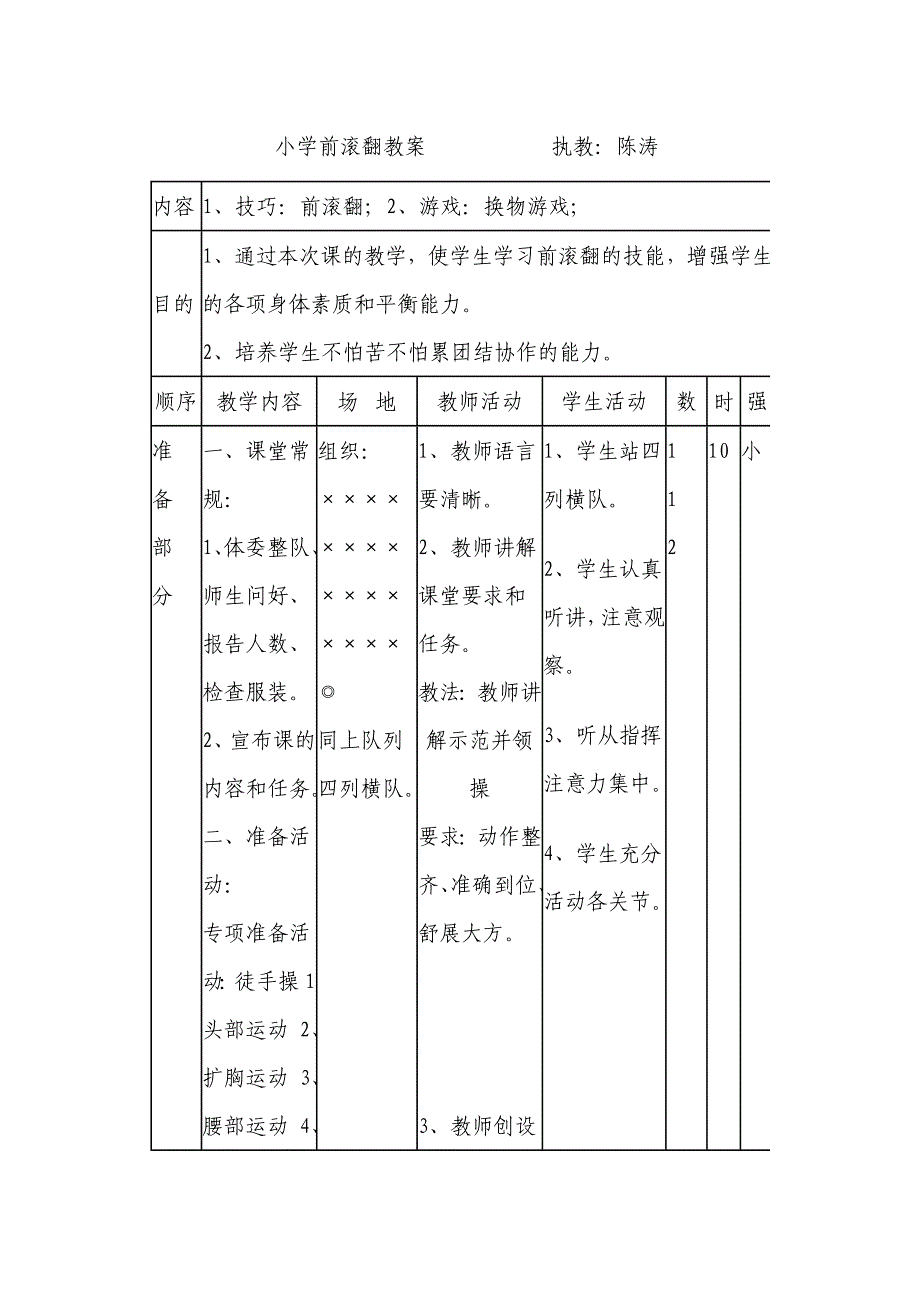 小学前滚翻教案 执教：陈涛
内容 1、技巧：前滚翻；2、游戏：换物游戏；
目的
1、通过本次课的教学，使学生学习前滚翻的技能，增强学生
的各项身体素质和平衡能力。
2、培养学生不怕苦不怕累团结协作的能力。
顺序 教学内容 场 地 教师活动 学生活动 数 时 强
准
备
部
分
一、课堂常
规：
1、体委整队、
师生问好、
报告人数、
检查服装。
2、宣布课的
内容和任务。
二、准备活
动：
专项准备活
动：徒手操 1
头部运动 2、
扩胸运动 3、
腰部运动 4、
组织：
××××
××××
××××
××××
◎
同上队列
四列横队。
1、教师语言
要清晰。
2、教师讲解
课堂要求和
任务。
教法：教师讲
解示范并领
操
要求：动作整
齐、准确到位、
舒展大方。
3、教师创设
1、学生站四
列横队。
2、学生认真
听讲，注意观
察。
3、听从指挥
注意力集中。
4、学生充分
活动各关节。
1
1
2
10
小